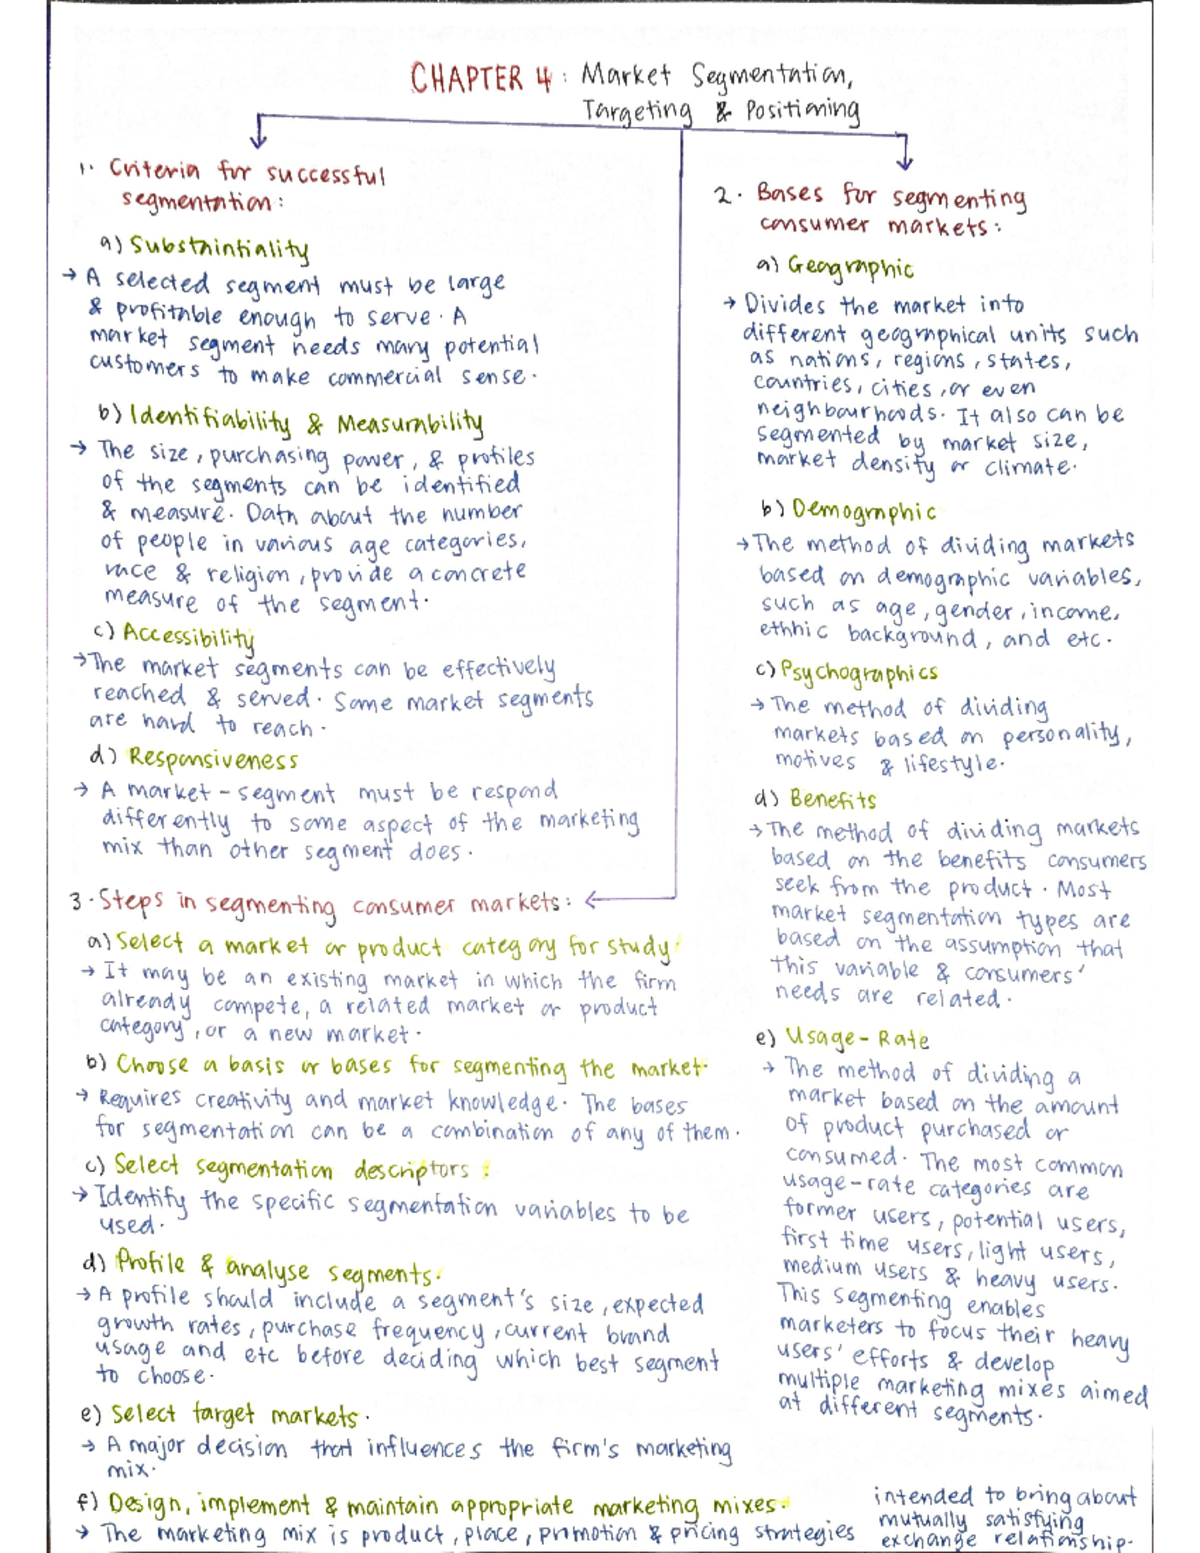 CHAPTER 4 : Market Segmentation,
Targeting & Positioning
1. Criteria for successful
segmentation:
a) Substaintiality
→ A selected segment must be large
& profitable enough to serve. A
market segment needs many potential
customers to make commercial sense.
b) Identifiability & Measurability
→ The size, purchasing power, & profiles
of the segments can be identified
& measure. Data about the number
of people in various age categories,
race & religion, provide a concrete
measure of the segment.
c) Accessibility
→ The market segments can be effectively
reached & served. Some market segments
are hard to reach.
d) Responsiveness
→ A market-segment must be respond
differently to some aspect of the marketing
mix than other segment does.
2. Bases for segmenting
consumer markets:
a) Geographic
→ Divides the market into
different geographical units such
as nations, regions, states,
countries, cities, or even
neighbourhoods. It also can be
segmented by market size,
market density or climate.
b) Demographic
→ The method of dividing markets
based on demographic variables,
such as age, gender, income,
ethnic background, and etc.
c) Psychographics
→ The method of dividing
markets based on personality,
motives & lifestyle.
d) Benefits
→ The method of dividing markets
based on the benefits consumers
seek from the product. Most
market segmentation types are
based on the assumption that
this variable & consumers'
needs are related.
e) Usage-Rate
→ The method of dividing a
market based on the amount
of product purchased or
consumed. The most common
usage-rate categories are
former users, potential users,
first time users, light users,
medium users & heavy users.
This segmenting enables
marketers to focus their heavy
users' efforts & develop
multiple marketing mixes aimed
at different segments.
3. Steps in segmenting consumer markets:
a) Select a market or product category for study
→ It may be an existing market in which the firm
already compete, a related market or product
category, or a new market.
b) Choose a basis or bases for segmenting the market.
→ Requires creativity and market knowledge. The bases
for segmentation can be a combination of any of them.
c) Select segmentation descriptors :
→ Identify the specific segmentation variables to be
used.
d) Profile & analyse segments.
→ A profile should include a segment's size, expected
growth rates, purchase frequency, current brand
usage and etc before deciding which best segment
to choose.
e) Select target markets.
→ A major decision that influences the firm's marketing
mix.
f) Design, implement & maintain appropriate marketing mixes.
→ The marketing mix is product, place, promotion & pricing strategies
intended to bring about
mutually satisfying
exchange relationship.